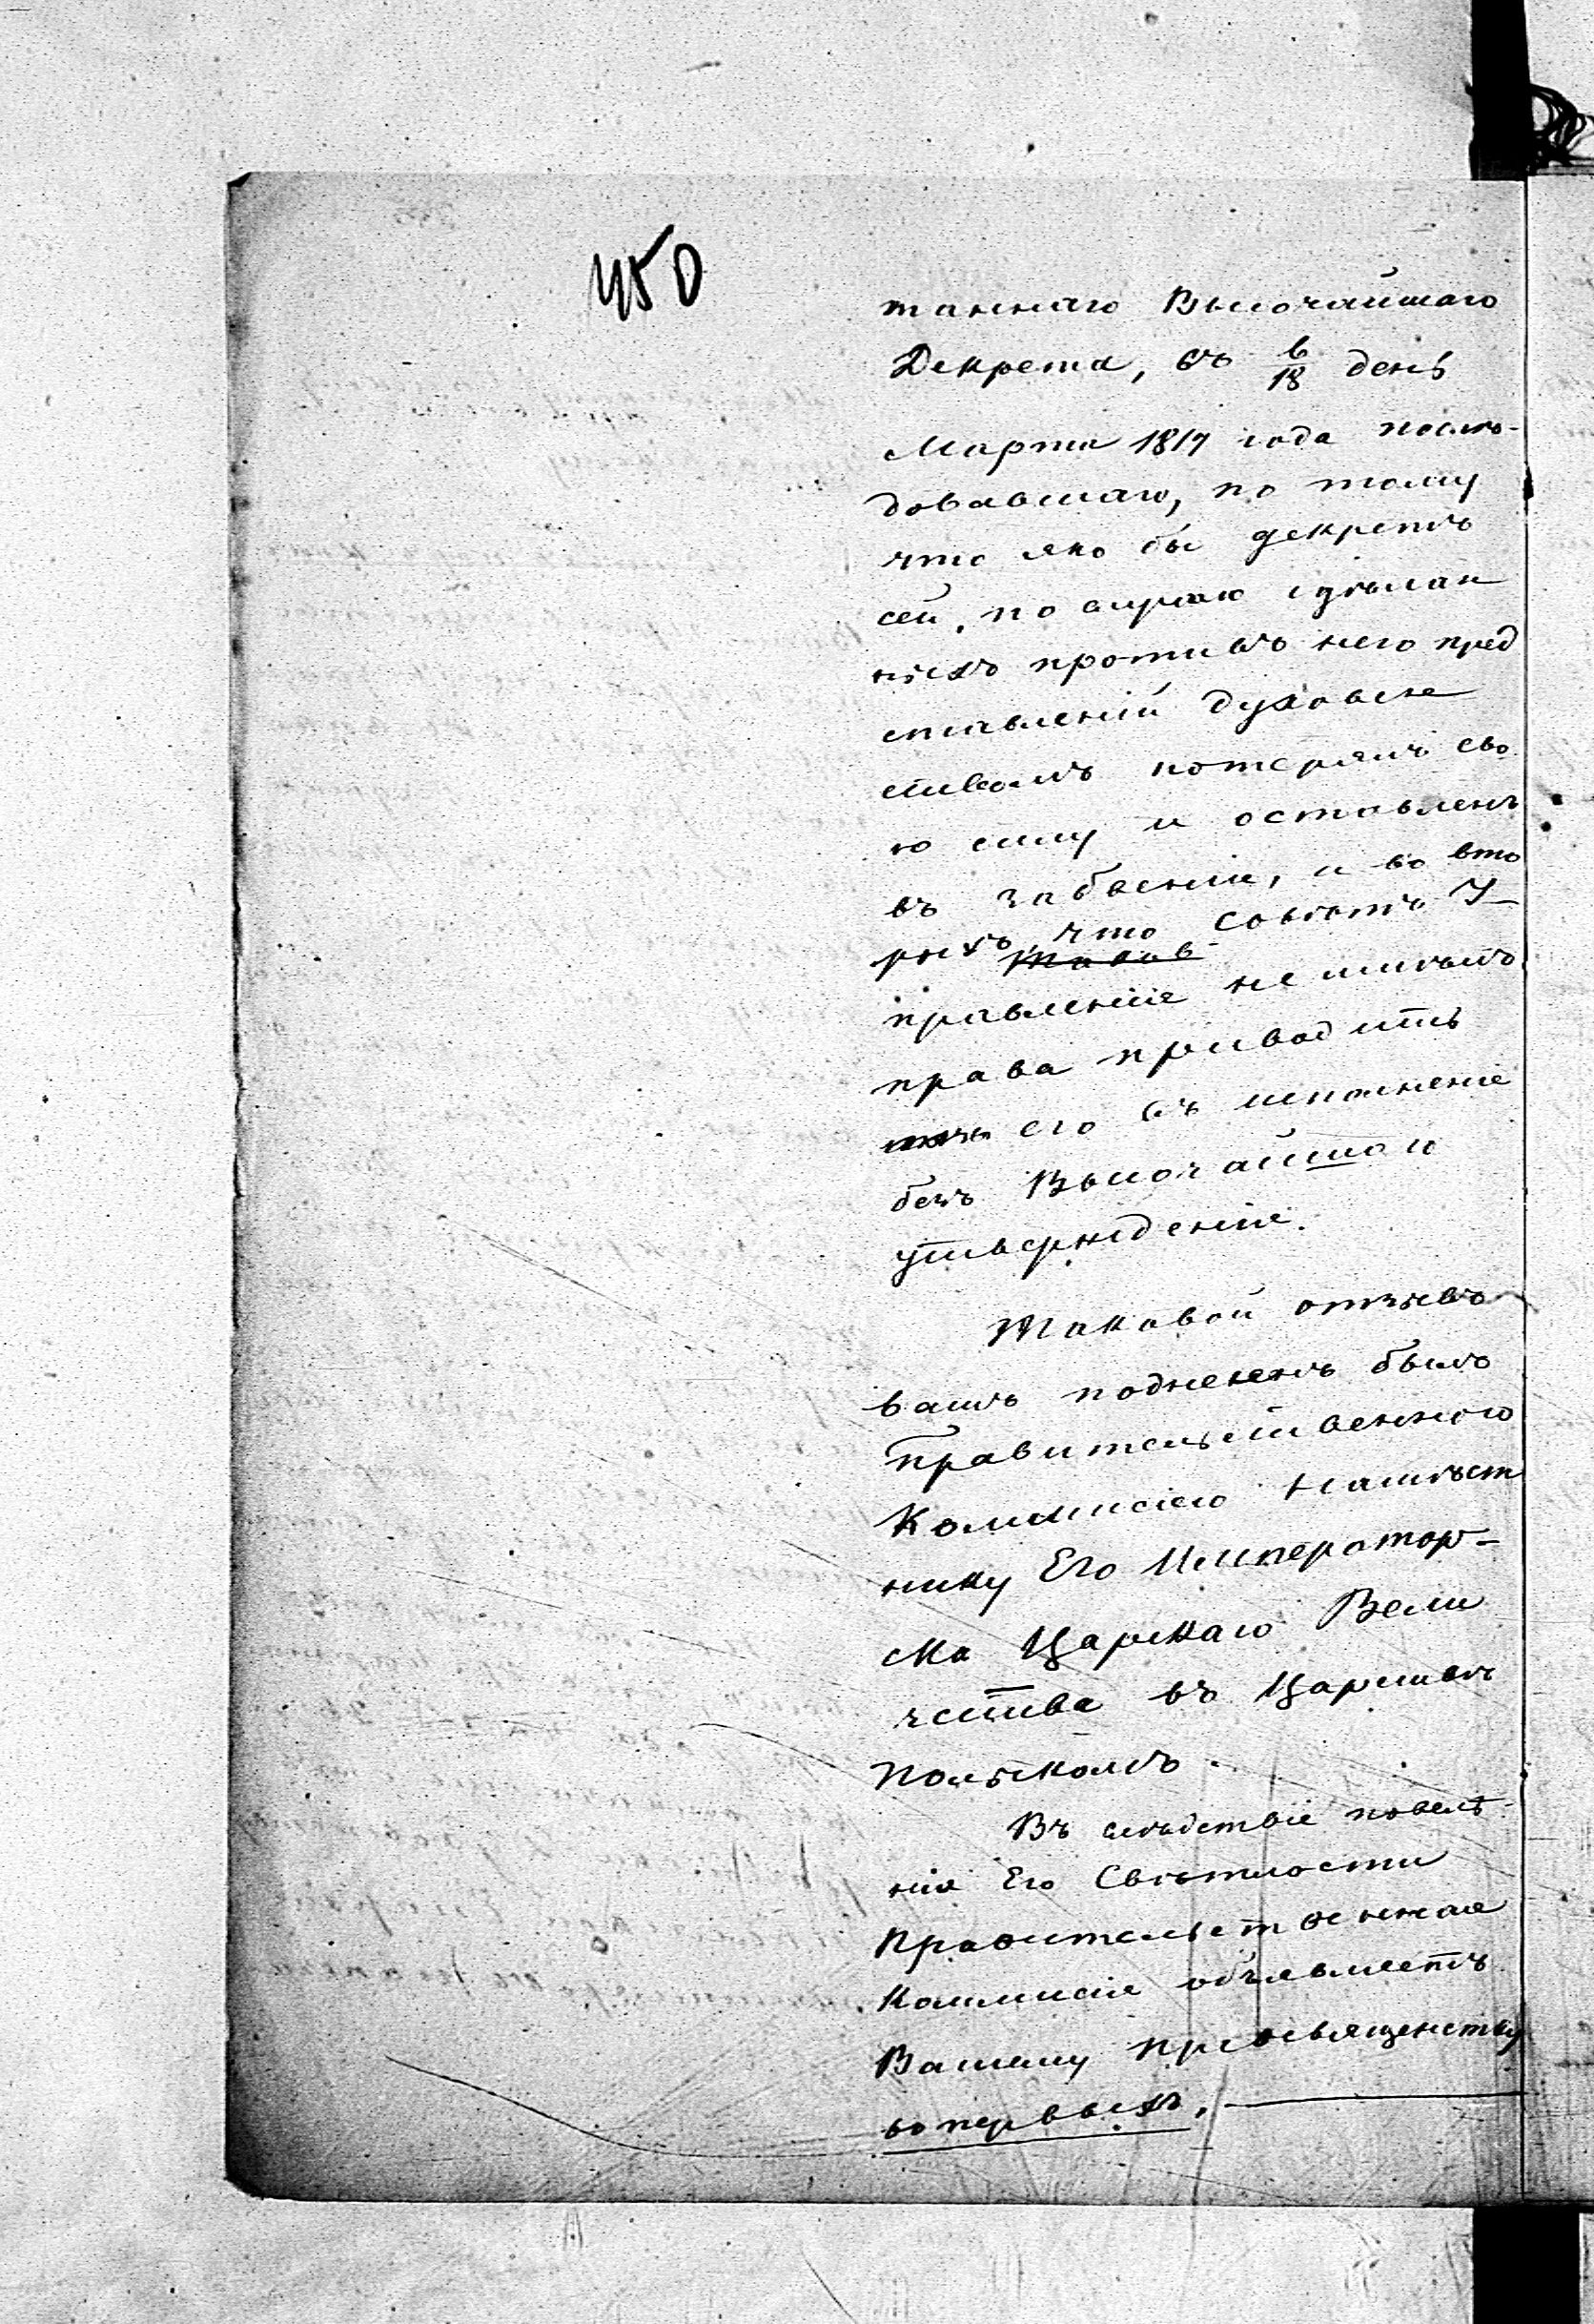 450
таннаго Высочайшаго
Декрета, въ 6/18 день
Марта 1817 года послѣ-
довавшаго, по тому
что яко бы декретъ
сей, по случаю сдѣлан
ныхъ противъ него пред
ставленій Духовен
ствомъ потерялъ сво
ю силу и оставленъ
въ забвеніи, и во вто
рыхъ что Совѣтъ У-
правленія не имѣлъ
права приводить
его въ исполненіе
безъ Высочайшаго
утвержденія.
Таковой отзывъ
вашъ поднесенъ былъ
Правительственною
Коммисіею Намѣст
нику Его Император-
ско Царскаго Вели
чества въ Царствѣ
Польскомъ.
Въ слѣдствіе повелѣ-
нія Его Свѣтлости
Правительственная
Коммисія объявляетъ
Вашему Преосвященству
во первыхъ,